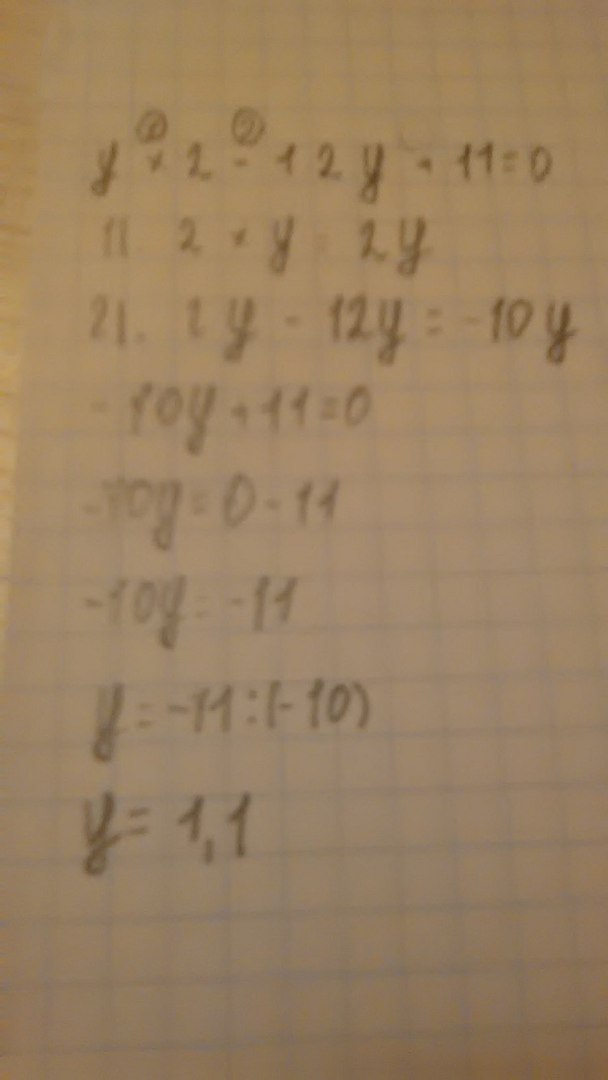 ① ②
y × 2 - 12y + 11 = 0
1) 2 × y = 2y
2). 2y - 12y = -10y
-10y + 11 = 0
-10y = 0 - 11
-10y = -11
y = -11 : (-10)
y = 1,1